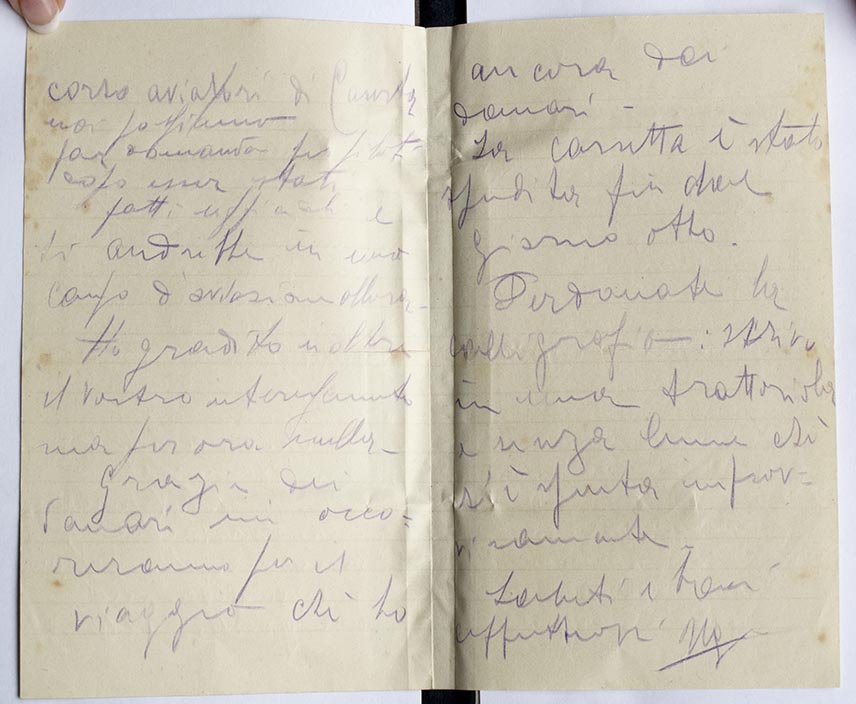 corso aviatori di Caserta
noi possiamo
far domanda per piloti
dopo esser stati
fatti ufficiali e
si andrebbe in uno
campo d'aviazione allora -
Ho gradito inoltre
il vostro interessamento
ma per ora nulla -
Grazie dei
danari mi occo=
reranno per il
viaggio chè ho
ancora dei
danari -
La cassetta è stata
spedita fin dal
giorno otto.
Perdonate la
: scrivo
in una trattoriola
e senza lume chè
s'è spenta improv=
visamente -
Saluti e baci
affettuosi